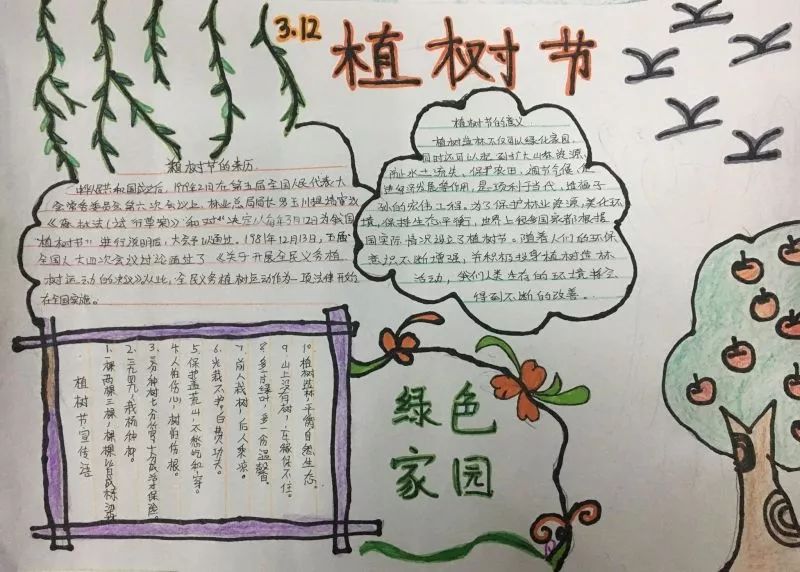 3.12
植树节
植树节的来历
中华人民共和国成立后,1979年2月在第五届全国人民代表大
会常务委员会第六次会议上,林业总局局长罗玉川提请审议
《森林法(试行草案)》和对"决定以每年3月12日为我国
植树节"进行说明后,大会予以通过。1981年12月13日,五届
全国人大四次会议讨论通过了《关于开展全民义务植
树运动的决议》从此,全民义务植树运动作为一项法律开始
在全国实施。
植树节的意义
植树造林不仅可以绿化家园,
同时还可以起到扩大山林资源、
防止水土流失、保护农田、调节气候、促
进经济发展等作用,是一项利于当代、造福子
孙的宏伟工程。为了保护林业资源,美化环
境,保持生态平衡,世界上很多国家都根据
国实际情况设立了植树节。随着人们的环保
意识不断增强,节积极投身植树造林
活动,我们人类生存的环境将会
得到不断的改善。
植树节宣传语
1.一棵两棵三棵,棵棵皆成栋梁
2.三元四元,我杨种柳。
3.三分种树七分管,十分成活才保险。
4.人怕伤心,树怕伤根。
5.保护盖荒山,不愁吃和穿。
6.光栽不护,白费功夫。
7.前人栽树,后人乘凉。
8.多一片绿叶,多一份温馨。
9.山上没有树,水土保不住。
10.植树造林,平衡自然生态。
绿色
家园